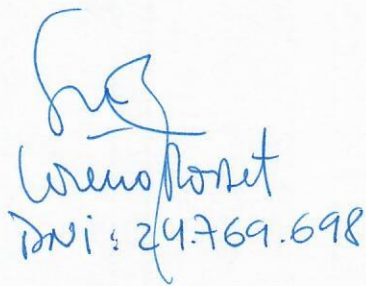 Lorena Rosset
DNI: 24.769.698